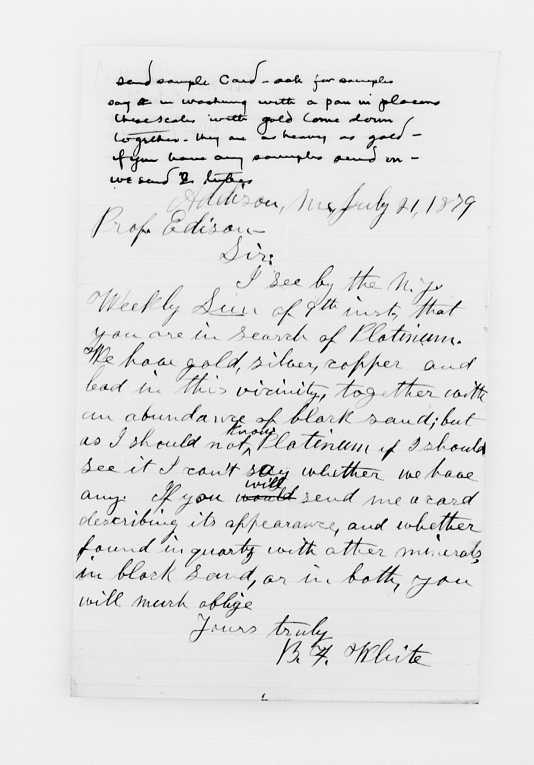 send sample Card - ask for samples
say in washing with a pan in placers
these scales with gold Come down
together - they are as heavy as gold -
if you have any samples send on -
we send 2
Addison, Me, July 21, 1879
Prof. Edison -
Sir:
I see by the N.Y.
Weekly Sun of 9th inst, that
you are in search of Platinum.
We have gold, silver, copper and
lead in this vicinity, together with
an abundance of black sand; but
as I should not know Platinum if I should
see it I can't say whether we have
any. If you would will send me a card
describing its appearance, and whether
found in quartz with other minerals,
in black sand, or in both, you
will much oblige
Yours truly
B. F. White